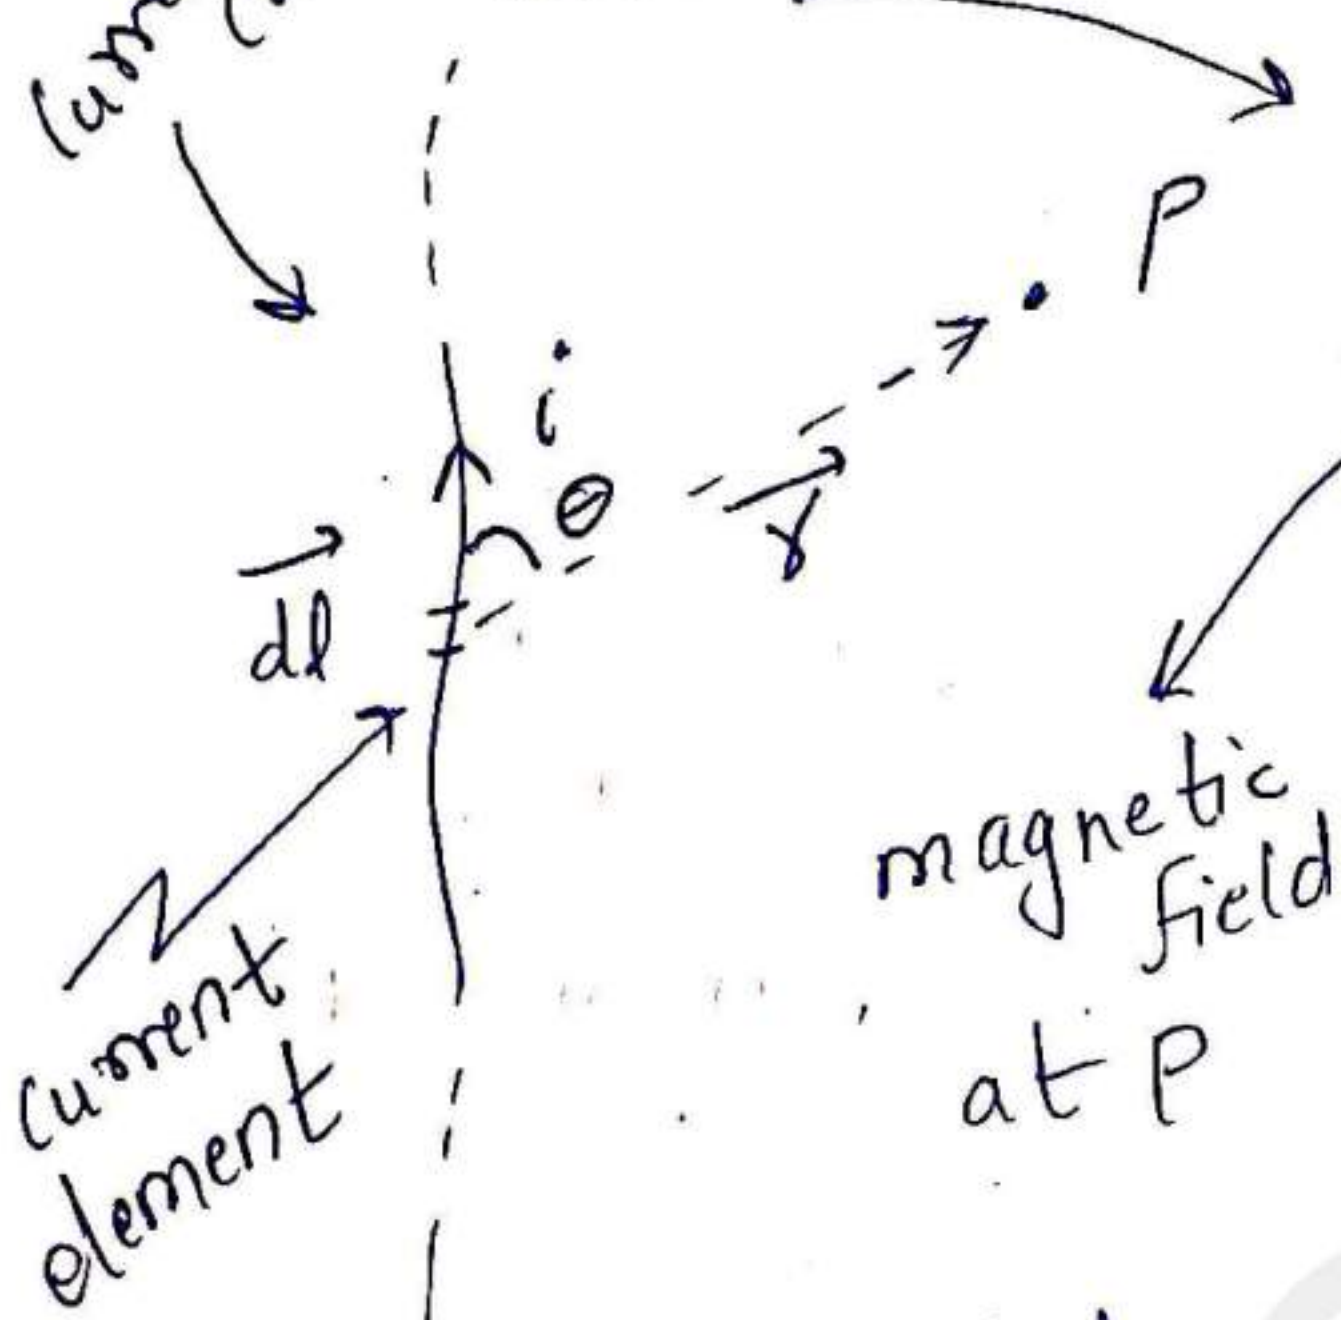 P
i
θ
r
dl
magnetic
field
at P
current
element